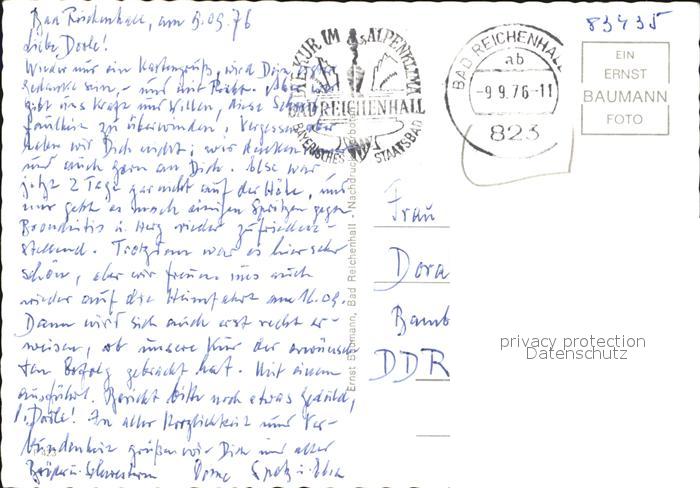 Bad Reichenhall, am 9.09.76
Liebe Dorle!
Wieder nur ein Kartengruß, wird Dein
Gedanke sein, - und mit Recht. Aber
gibt uns Kraft und Willen, diese
faulheit zu überwinden. Vergessen aber
haben wir Dich nicht; wir denken
und auch gern an Dich. Else war
jetzt 2 Tage gar nicht auf der Höhe, und
nun geht es nach einigen Spritzen gegen
Bronchitis u. Herz wieder zufrieden-
stellend. Trotzdem war es hier sehr
schön, aber wir freuen uns auch
wieder auf die Heimfahrt am 16.09.
Dann wird sich auch erst recht er-
weisen, ob unsere Kur den erwünsch-
ten Erfolg gebracht hat. Mit einem
ausführl. Bericht bitte noch etwas Geduld,
l. Dorle! In aller Herzlichkeit und Ver-
bundenheit grüßen wir Dich und alle
Brüder u. Schwestern
HEILKUR IM ALPENKLIMA
BAD REICHENHALL
BAYERISCHES STAATSBAD
BAD REICHENHALL
ab
-9.9.76-11
823
83435
EIN
ERNST
BAUMANN
FOTO
Ernst Baumann, Bad Reichenhall - Nachdruck verboten
Frau
Dora
Bamb
DDR
privacy protection
Datenschutz